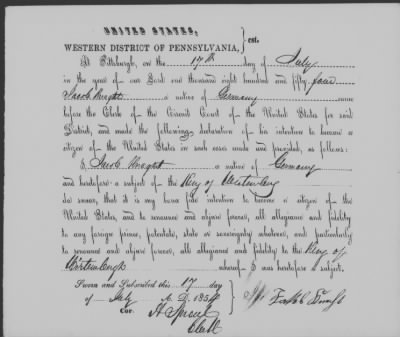 UNITED STATES,
WESTERN DISTRICT OF PENNSYLVANIA, } sst.
At Pittsburgh, on the 17th day of July
in the year of our Lord one thousand eight hundred and fifty four
Jacob a native of Germany came
before the Clerk of the Circuit Court of the United States for said
District, and made the following declaration of his intention to become a
citizen of the United States in such cases made and provided, as follows:
I, Jacob a native of Germany
and heretofore a subject of the King of
do swear, that it is my bona fide intention to become a citizen of the
United States, and to renounce and abjure forever, all allegiance and fidelity
to any foreign prince, potentate, state or sovereignty whatever, and particularly
to renounce and abjure forever, all allegiance and fidelity to the King of
whereof I was heretofore a subject.
Sworn and Subscribed this 17 day
of July A. D. 1854
Cor. H Sproul
Clerk